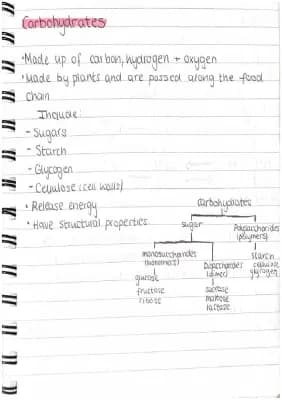 Carbohydrates
• Made up of carbon, hydrogen + oxygen
• Made by plants and are passed along the food
chain
Include:
- Sugars
- Starch
- Glycogen
- Cellulose (cell walls)
• Release energy
• Have structural properties
carbohydrates
sugar
Polysaccharides
(polymers)
monosaccharides
(monomers)
Disaccharides
(dimer)
starch
cellulose
glycogen
glucose
fructose
ribose
sucrose
maltose
lactase